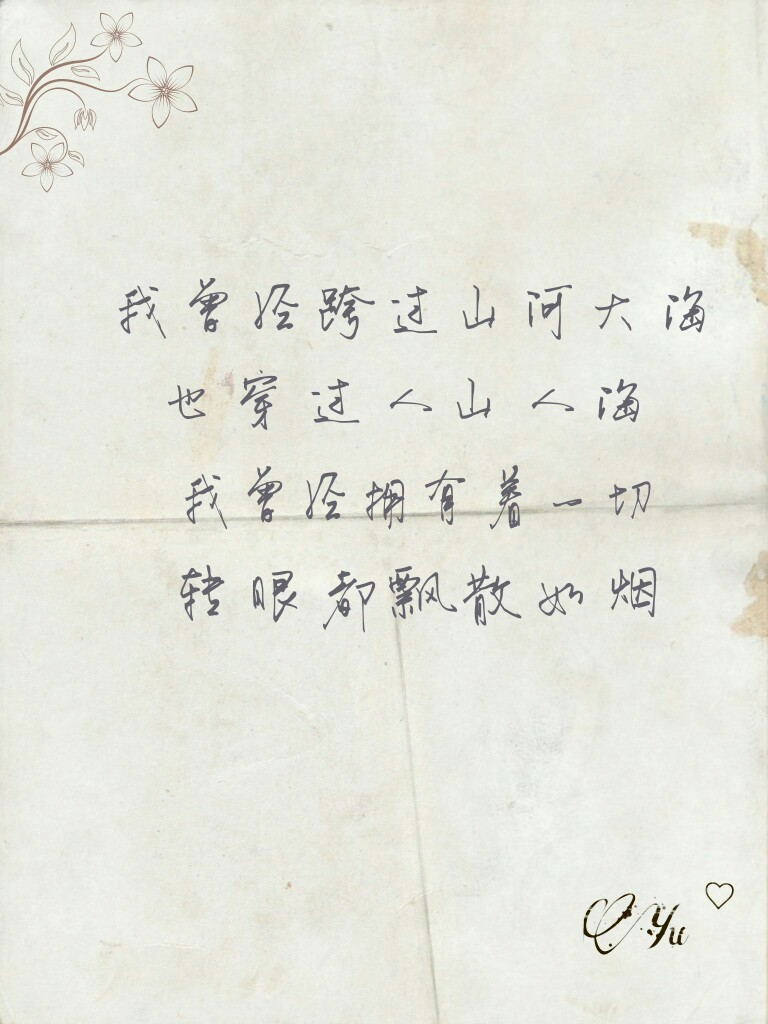 我曾经跨过山河大海
也穿过人山人海
我曾经拥有着一切
转眼都飘散如烟
Yu